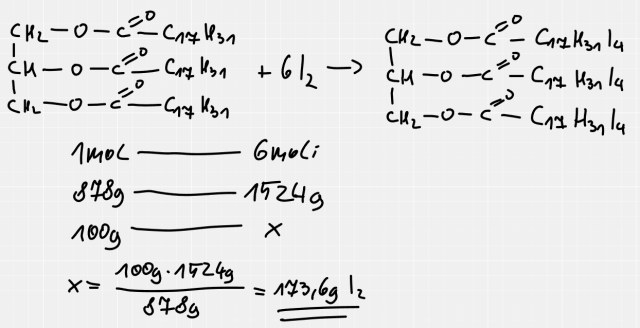 CH₂ – O – C=O – C₁₇H₃₁
CH – O – C=O – C₁₇H₃₁ + 6I₂ → 
CH₂ – O – C=O – C₁₇H₃₁
CH₂ – O – C=O – C₁₇H₃₁I₄
CH – O – C=O – C₁₇H₃₁I₄
CH₂ – O – C=O – C₁₇H₃₁I₄
1mol — 6moli
878g — 1524g
100g — x
x = 100g · 1524g / 878g = 173,6g I₂